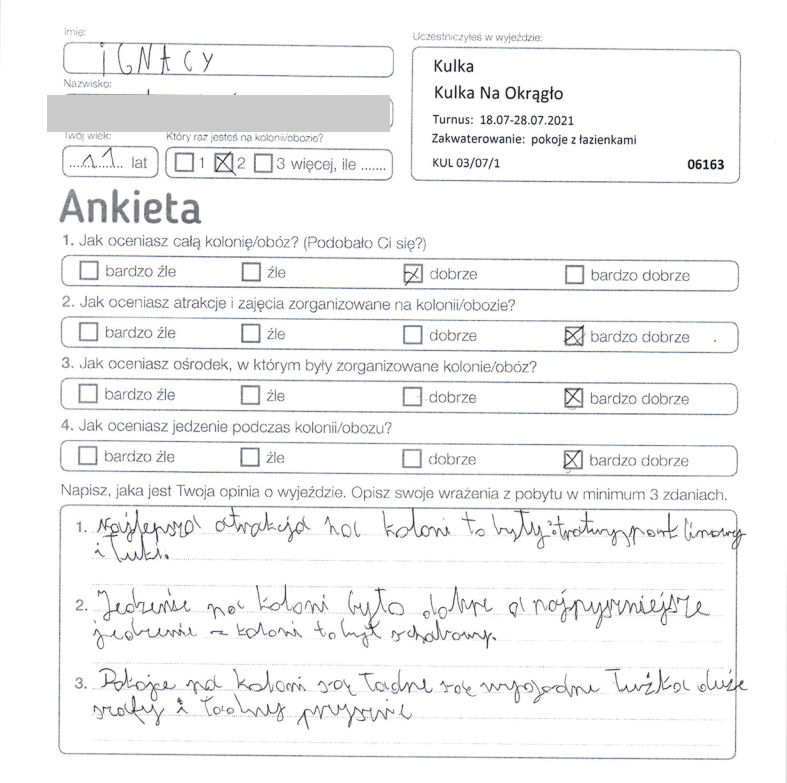 Imię:
IGNACY
Nazwisko:
Twój wiek:
Który raz jesteś na kolonii/obozie?
....11.. lat
1 2 3 więcej, ile .......
Uczestniczyłeś w wyjeździe:
Kulka
Kulka Na Okrągło
Turnus: 18.07-28.07.2021
Zakwaterowanie: pokoje z łazienkami
KUL 03/07/1 06163
Ankieta
1. Jak oceniasz całą kolonię/obóz? (Podobało Ci się?)
bardzo źle źle dobrze bardzo dobrze
2. Jak oceniasz atrakcje i zajęcia zorganizowane na kolonii/obozie?
bardzo źle źle dobrze bardzo dobrze
3. Jak oceniasz ośrodek, w którym były zorganizowane kolonie/obóz?
bardzo źle źle dobrze bardzo dobrze
4. Jak oceniasz jedzenie podczas kolonii/obozu?
bardzo źle źle dobrze bardzo dobrze
Napisz, jaka jest Twoja opinia o wyjeździe. Opisz swoje wrażenia z pobytu w minimum 3 zdaniach.
1. Najlepsza atrakcja na koloni to były: tratwy, park linowy
i łuki.
2. Jedzenie na koloni było dobre a najpyszniejsze
jedzenie z koloni to był schabowy.
3. Pokoje na koloni są ładne są wygodne łużka duże
szafy i ładny prysznic